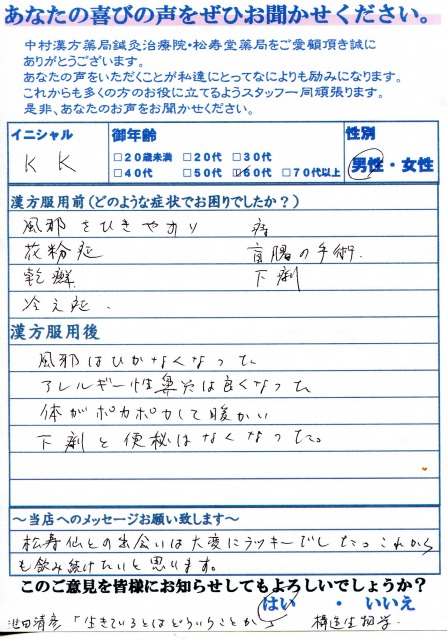 あなたの喜びの声をぜひお聞かせください。
中村漢方薬局鍼灸治療院・松寿堂薬局をご愛顧頂き誠に
ありがとうございます。
あなたの声をいただくことが私達にとってなによりも励みになります。
これからも多くの方のお役に立てるようスタッフ一同頑張ります。
是非、あなたのお声をお聞かせください。
イニシャル 御年齢 性別
K K
□20歳未満 □20代 □30代
□40代 □50代 □60代 □70代以上
男性・女性
漢方服用前(どのような症状でお困りでしたか?)
風邪をひきやすい 痔
花粉症 盲腸の手術.
乾癬 下痢
冷え症.
漢方服用後
風邪はひかなくなった
アレルギー性鼻炎は良くなった
体がポカポカして暖かい
下痢と便秘はなくなった。
~当店へのメッセージお願い致します~
松寿仙との出会いは大変にラッキーでした これから
も飲み続けたいと思います。
このご意見を皆様にお知らせしてもよろしいでしょうか?
はい ・ いいえ
池田清彦 「生きているとはどういうことか」 構造生物学